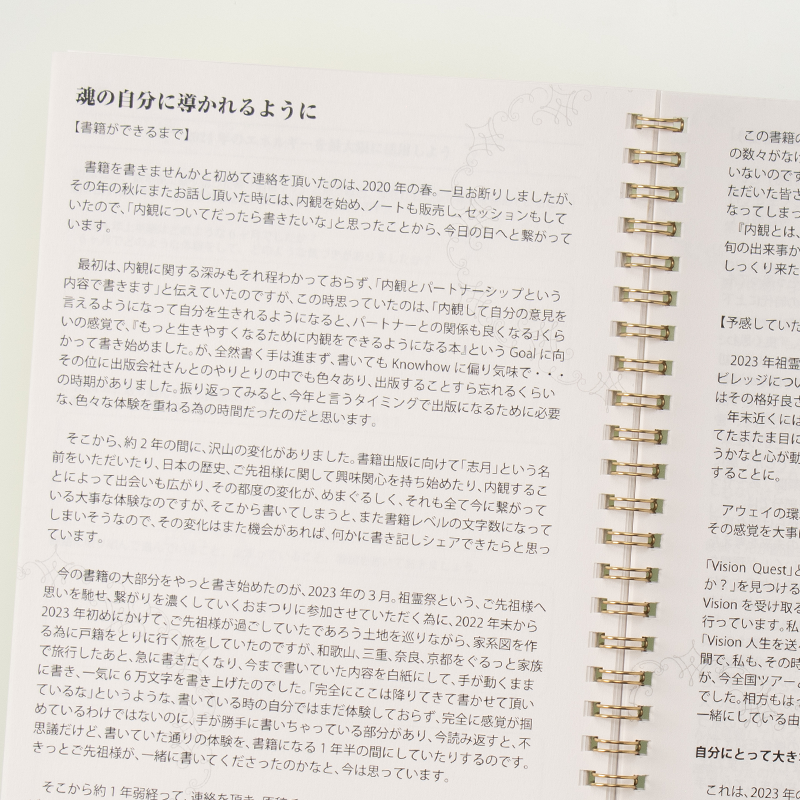 魂の自分に導かれるように
【書籍ができるまで】
書籍を書きませんかと初めて連絡を頂いたのは、2020 年の春。一旦お断りしましたが、
その年の秋にまたお話し頂いた時には、内観を始め、ノートも販売し、セッションもして
いたので、「内観についてだったら書きたいな」と思ったことから、今日の日へと繋がって
います。
最初は、内観に関する深みもそれ程わかっておらず、「内観とパートナーシップという
内容で書きます」と伝えていたのですが、この時思っていたのは、「内観して自分の意見を
言えるようになって自分を生きれるようになると、パートナーとの関係も良くなる」くら
いの感覚で、『もっと生きやすくなるために内観をできるようになる本』という Goal に向
かって書き始めました。が、全然書く手は進まず、書いても Knowhow に偏り気味で・・・
その位に出版会社さんとのやりとりの中でも色々あり、出版することすら忘れるくらい
の時期がありました。振り返ってみると、今年と言うタイミングで出版になるために必要
な、色々な体験を重ねる為の時間だったのだと思います。
そこから、約 2 年の間に、沢山の変化がありました。書籍出版に向けて「志月」という名
前をいただいたり、日本の歴史、ご先祖様に関して興味関心を持ち始めたり、内観するこ
とによって出会いも広がり、その都度の変化が、めまぐるしく、それも全て今に繋がって
いる大事な体験なのですが、そこから書いてしまうと、また書籍レベルの文字数になって
しまいそうなので、その変化はまた機会があれば、何かに書き記しシェアできたらと思っ
ています。
今の書籍の大部分をやっと書き始めたのが、2023 年の 3 月。祖霊祭という、ご先祖様へ
思いを馳せ、繋がりを濃くしていくおまつりに参加させていただく為に、2022 年末から
2023 年初めにかけて、ご先祖様が過ごしていたであろう土地を巡りながら、家系図を作
る為に戸籍をとりに行く旅をしていたのですが、和歌山、三重、奈良、京都をぐるっと家族
で旅行したあと、急に書きたくなり、今まで書いていた内容を白紙にして、手が動くまま
に書き、一気に 6 万文字を書き上げたのでした。「完全にここは降りてきて書かせて頂い
ているな」というような、書いている時の自分ではまだ体験しておらず、完全に感覚が掴
めているわけではないのに、手が勝手に書いちゃっている部分があり、今読み返すと、不
思議だけど、書いていた通りの体験を、書籍になる 1 年半の間にしていたりするのです。
きっとご先祖様が、一緒に書いてくださったのかなと、今は思っています。
そこから約 1 年弱経って、連絡を頂き、
この書籍の
の数々がなけ
いないのです
ただいた皆さ
なってしまっ
『内観とは、
旬の出来事か
しっくり来た
【予感していた
2023 年祖霊
ビレッジについ
はその格好良さ
年末近くには
てたまたま目に
うかなと心が動
することに。
アウェイの環
その感覚を大事に
「Vision Quest」と
か？」を見つける
Vision を受け取る
行っています。私
「Vision 人生を送
間で、私も、その時
が、今全国ツアーと
でした。相方もはっ
一緒にしている由
自分にとって大き
これは、2023 年の